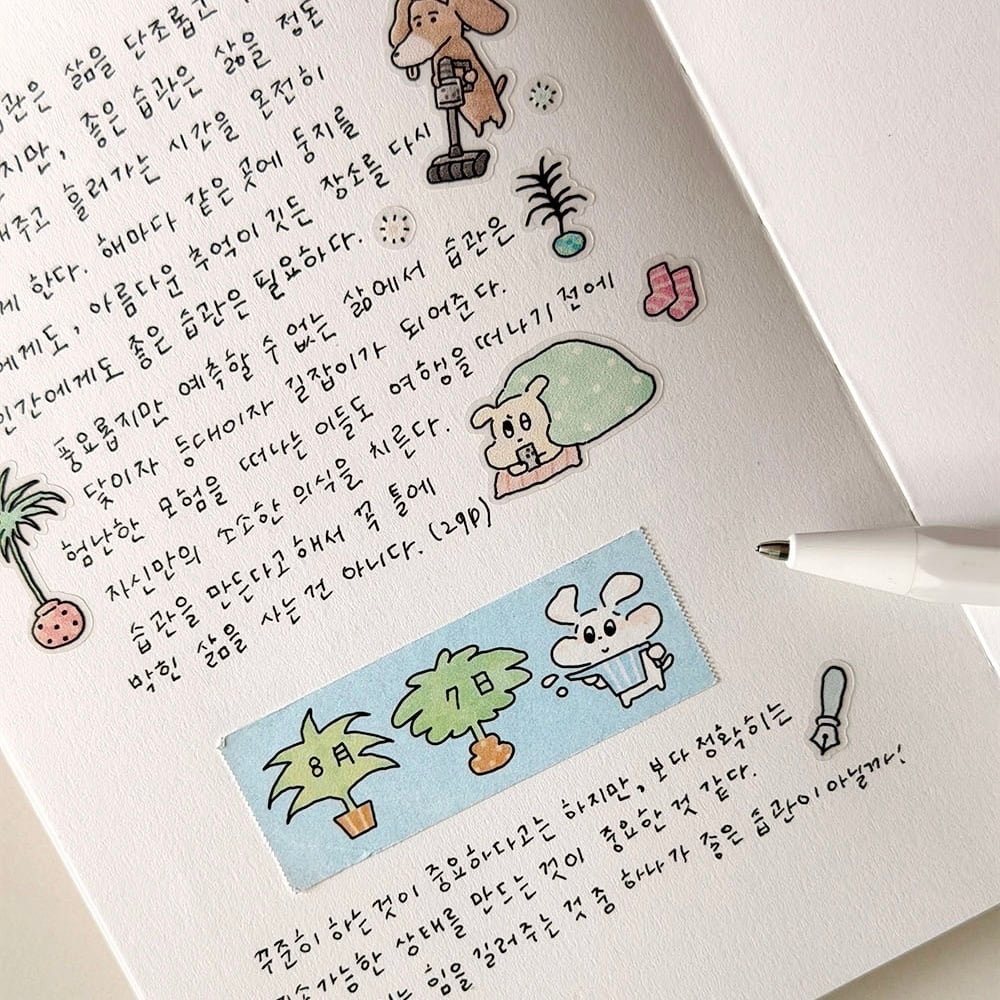 습관은 삶을 단조롭고
지만, 좋은 습관은 삶을 정돈
해주고 흘러가는 시간을 온전히
게 한다. 해마다 같은 곳에 둥지를
에게도, 아름다운 추억이 깃든 장소를 다시
인간에게도 좋은 습관은 필요하다.
풍요롭지만 예측할 수 없는 삶에서 습관은
닻이자 등대이자 길잡이가 되어준다.
험난한 모험을 떠나는 이들도 여행을 떠나기 전에
자신만의 소소한 의식을 치른다.
습관을 만든다고 해서 꼭 틀에
박힌 삶을 사는 건 아니다. (29p)
8月 7日
꾸준히 하는 것이 중요하다고는 하지만, 보다 정확히는
지속가능한 상태를 만드는 것이 중요한 것 같다.
는 힘을 길러주는 것 중 하나가 좋은 습관이 아닐까!